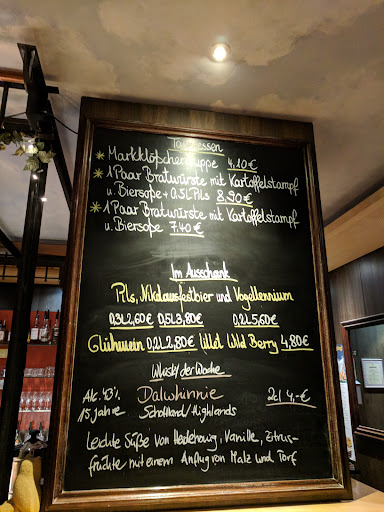 Tagesessen
* Markklößchensuppe 4,10€
* 1 Paar Bratwürste mit Kartoffelstampf
u. Biersoße + 0,5L Pils 8,90€
* 1 Paar Bratwürste mit Kartoffelstampf
u. Biersoße 7,40€
Im Ausschank
Pils, Nikolausfestbier und Vogellennium
0,3L 2,60€ 0,5L 3,80€ 0,2L 5,60€
Glühwein 0,2L 2,80€ Lillet Wild Berry 4,80€
Whisky der Woche
Alc. 43% Dalwhinnie 2cl 4,-€
15 Jahre Schottland/Highlands
Leichte Süße von Heidehonig, Vanille, Zitrus-
früchte mit einem Anflug von Malz und Torf